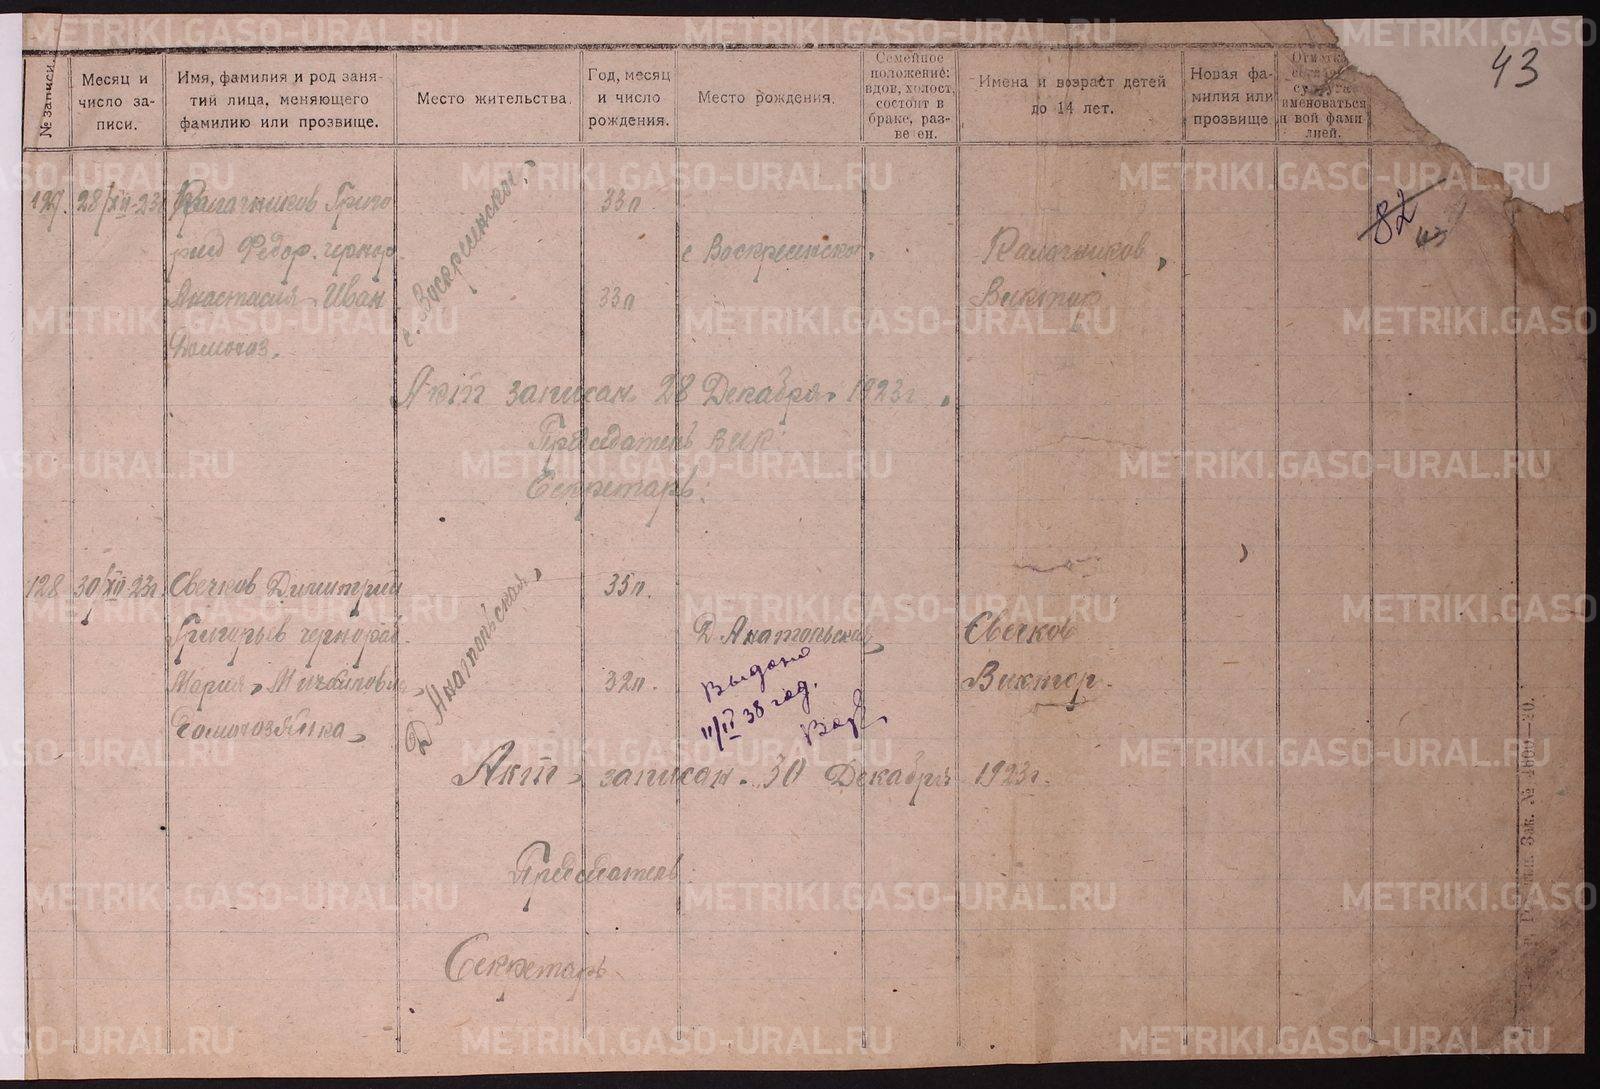 43
№ записи.
Месяц и число записи.
Имя, фамилия и род заня-
тий лица, меняющего
фамилию или прозвище.
Место жительства.
Год, месяц
и число
рождения.
Место рождения.
Семейное
положение:
вдов, холост,
состоит в
браке, раз-
веден.
Имена и возраст детей
до 14 лет.
Новая фа-
милия или
прозвище
именоваться
вой фами
лией.
82
43
127. 28/XII-23г. Калачников Григо
33л
Федор. чернор.
с. Воскресенское
с Воскресенско
Калачников
Анастасия Иван
33л
Виктор
Домохоз.
Акт записан 28 Декабря 1923г.
Председатель ВИК
Секретарь:
128 30/XII-23г. Свечков Димитрий
35л.
Григорьев чернораб.
Д Анатольская
Д Анатольская
Свечков
Мария Михаиловн
32л.
Виктор.
Домохозяйка
Выдано
11/II 38 год.
Акт записан 30 Декабря 1923г.
Председатель
Секретарь
Зак. № 4000—20.
METRIKI.GASO-URAL.RU